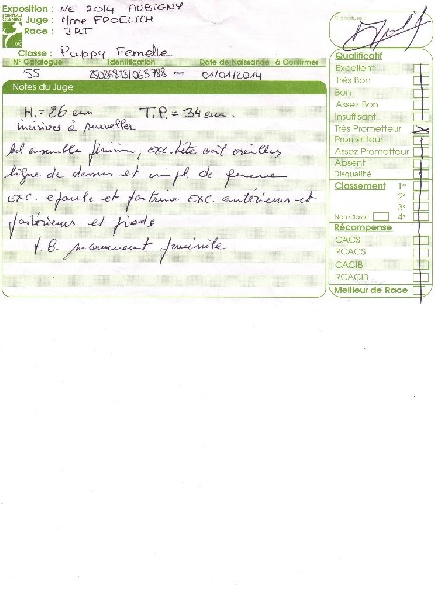 Exposition : NE 2014 AUBIGNY
Juge : Mme FROELICH
Race : JRT
Classe : Puppy Femelle
N° Catalogue Identification Date de Naissance à Confirmer
55 01/01/2014
Notes du Juge
H. = 26 cm T.P. = 34 cm.
incisives à renouveler
bel ensemble féminin, exc. tête oeil oreilles
ligne de dessus et impl de
exc. épaule et poitrine exc. antérieurs et
postérieurs et pieds
T.B. mouvement
Signature
Qualificatif
Excellent
Très Bon
Bon
Assez Bon
Insuffisant
Très Prometteur
Prometteur
Assez Prometteur
Absent
Disqualifié
Classement 1er
2e
3e
Non Classé 4e
Récompense
CACS
RCACS
CACIB
RCACIB
Meilleur de Race